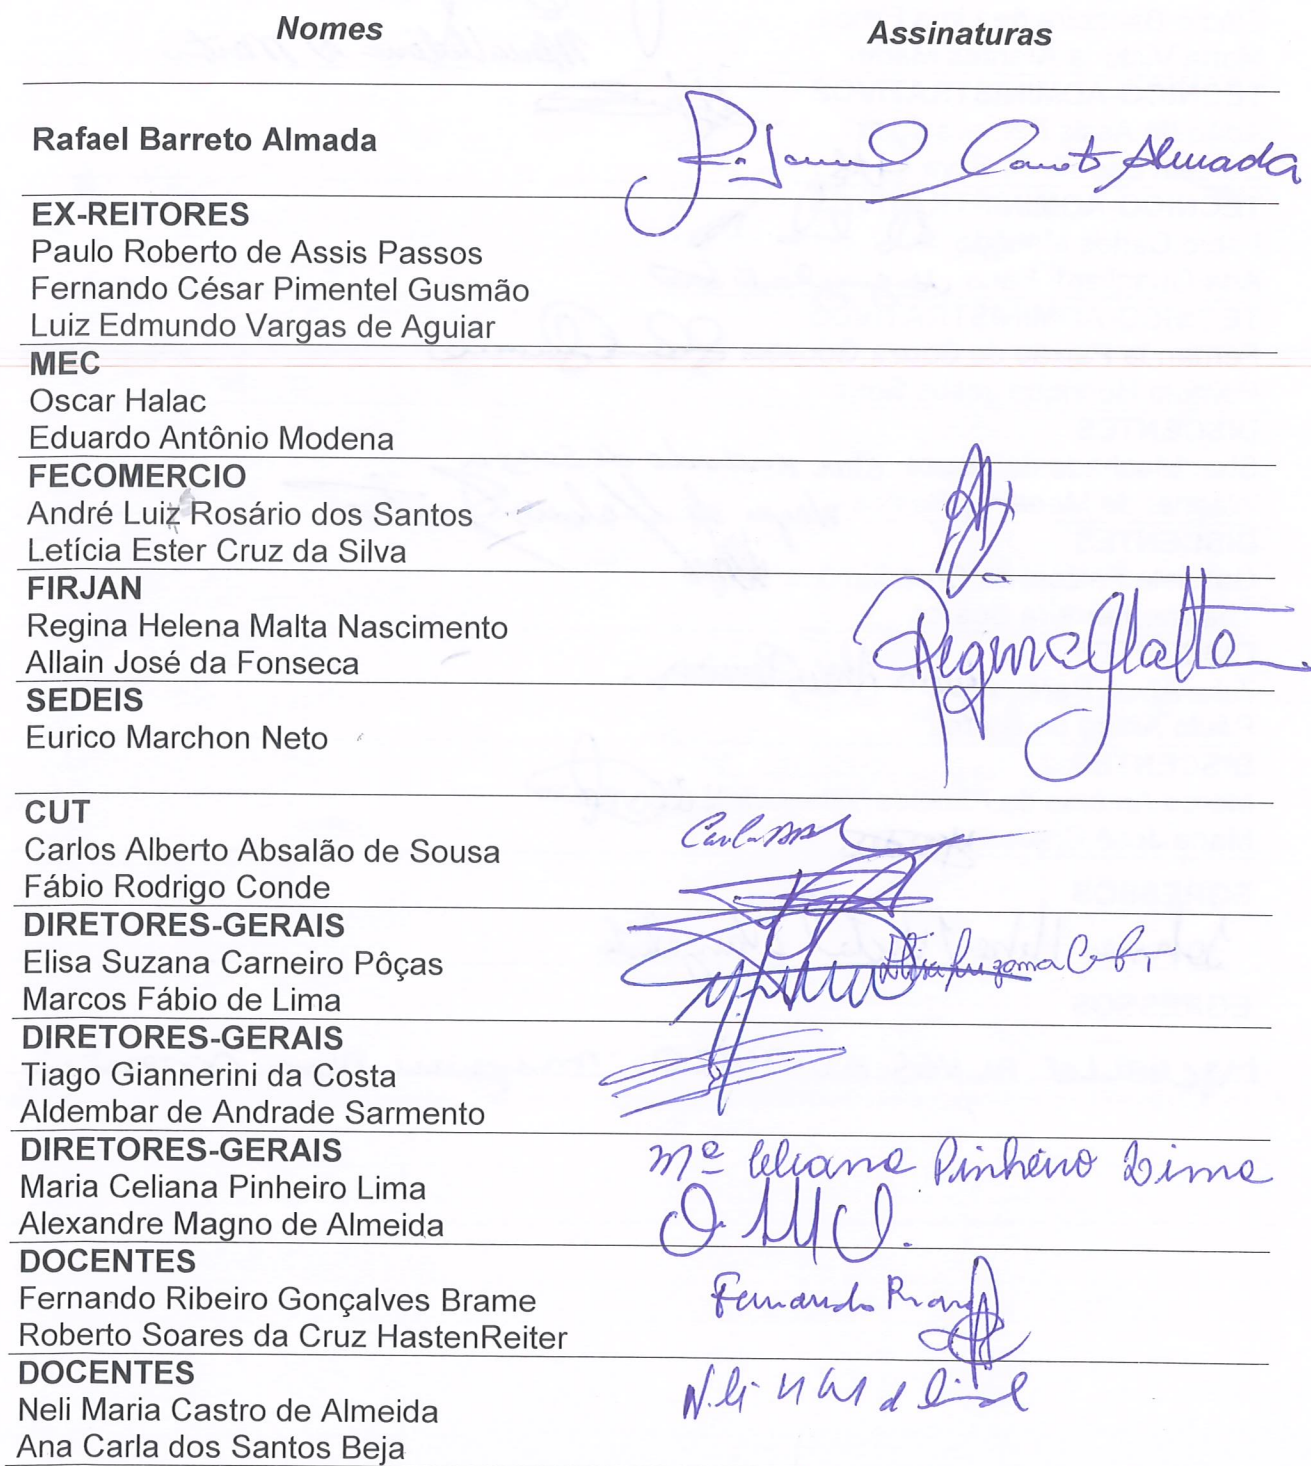 Nomes Assinaturas
Rafael Barreto Almada
EX-REITORES
Paulo Roberto de Assis Passos
Fernando César Pimentel Gusmão
Luiz Edmundo Vargas de Aguiar
MEC
Oscar Halac
Eduardo Antônio Modena
FECOMERCIO
André Luiz Rosário dos Santos
Letícia Ester Cruz da Silva
FIRJAN
Regina Helena Malta Nascimento
Allain José da Fonseca
Regina Malta
SEDEIS
Eurico Marchon Neto
CUT
Carlos Alberto Absalão de Sousa
Fábio Rodrigo Conde
DIRETORES-GERAIS
Elisa Suzana Carneiro Pôças
Marcos Fábio de Lima
DIRETORES-GERAIS
Tiago Giannerini da Costa
Aldembar de Andrade Sarmento
DIRETORES-GERAIS
Mª Celiana Pinheiro Lima
Maria Celiana Pinheiro Lima
Alexandre Magno de Almeida
DOCENTES
Fernando Ribeiro Gonçalves Brame Fernando
Roberto Soares da Cruz HastenReiter
DOCENTES
Neli Maria Castro de Almeida
Ana Carla dos Santos Beja